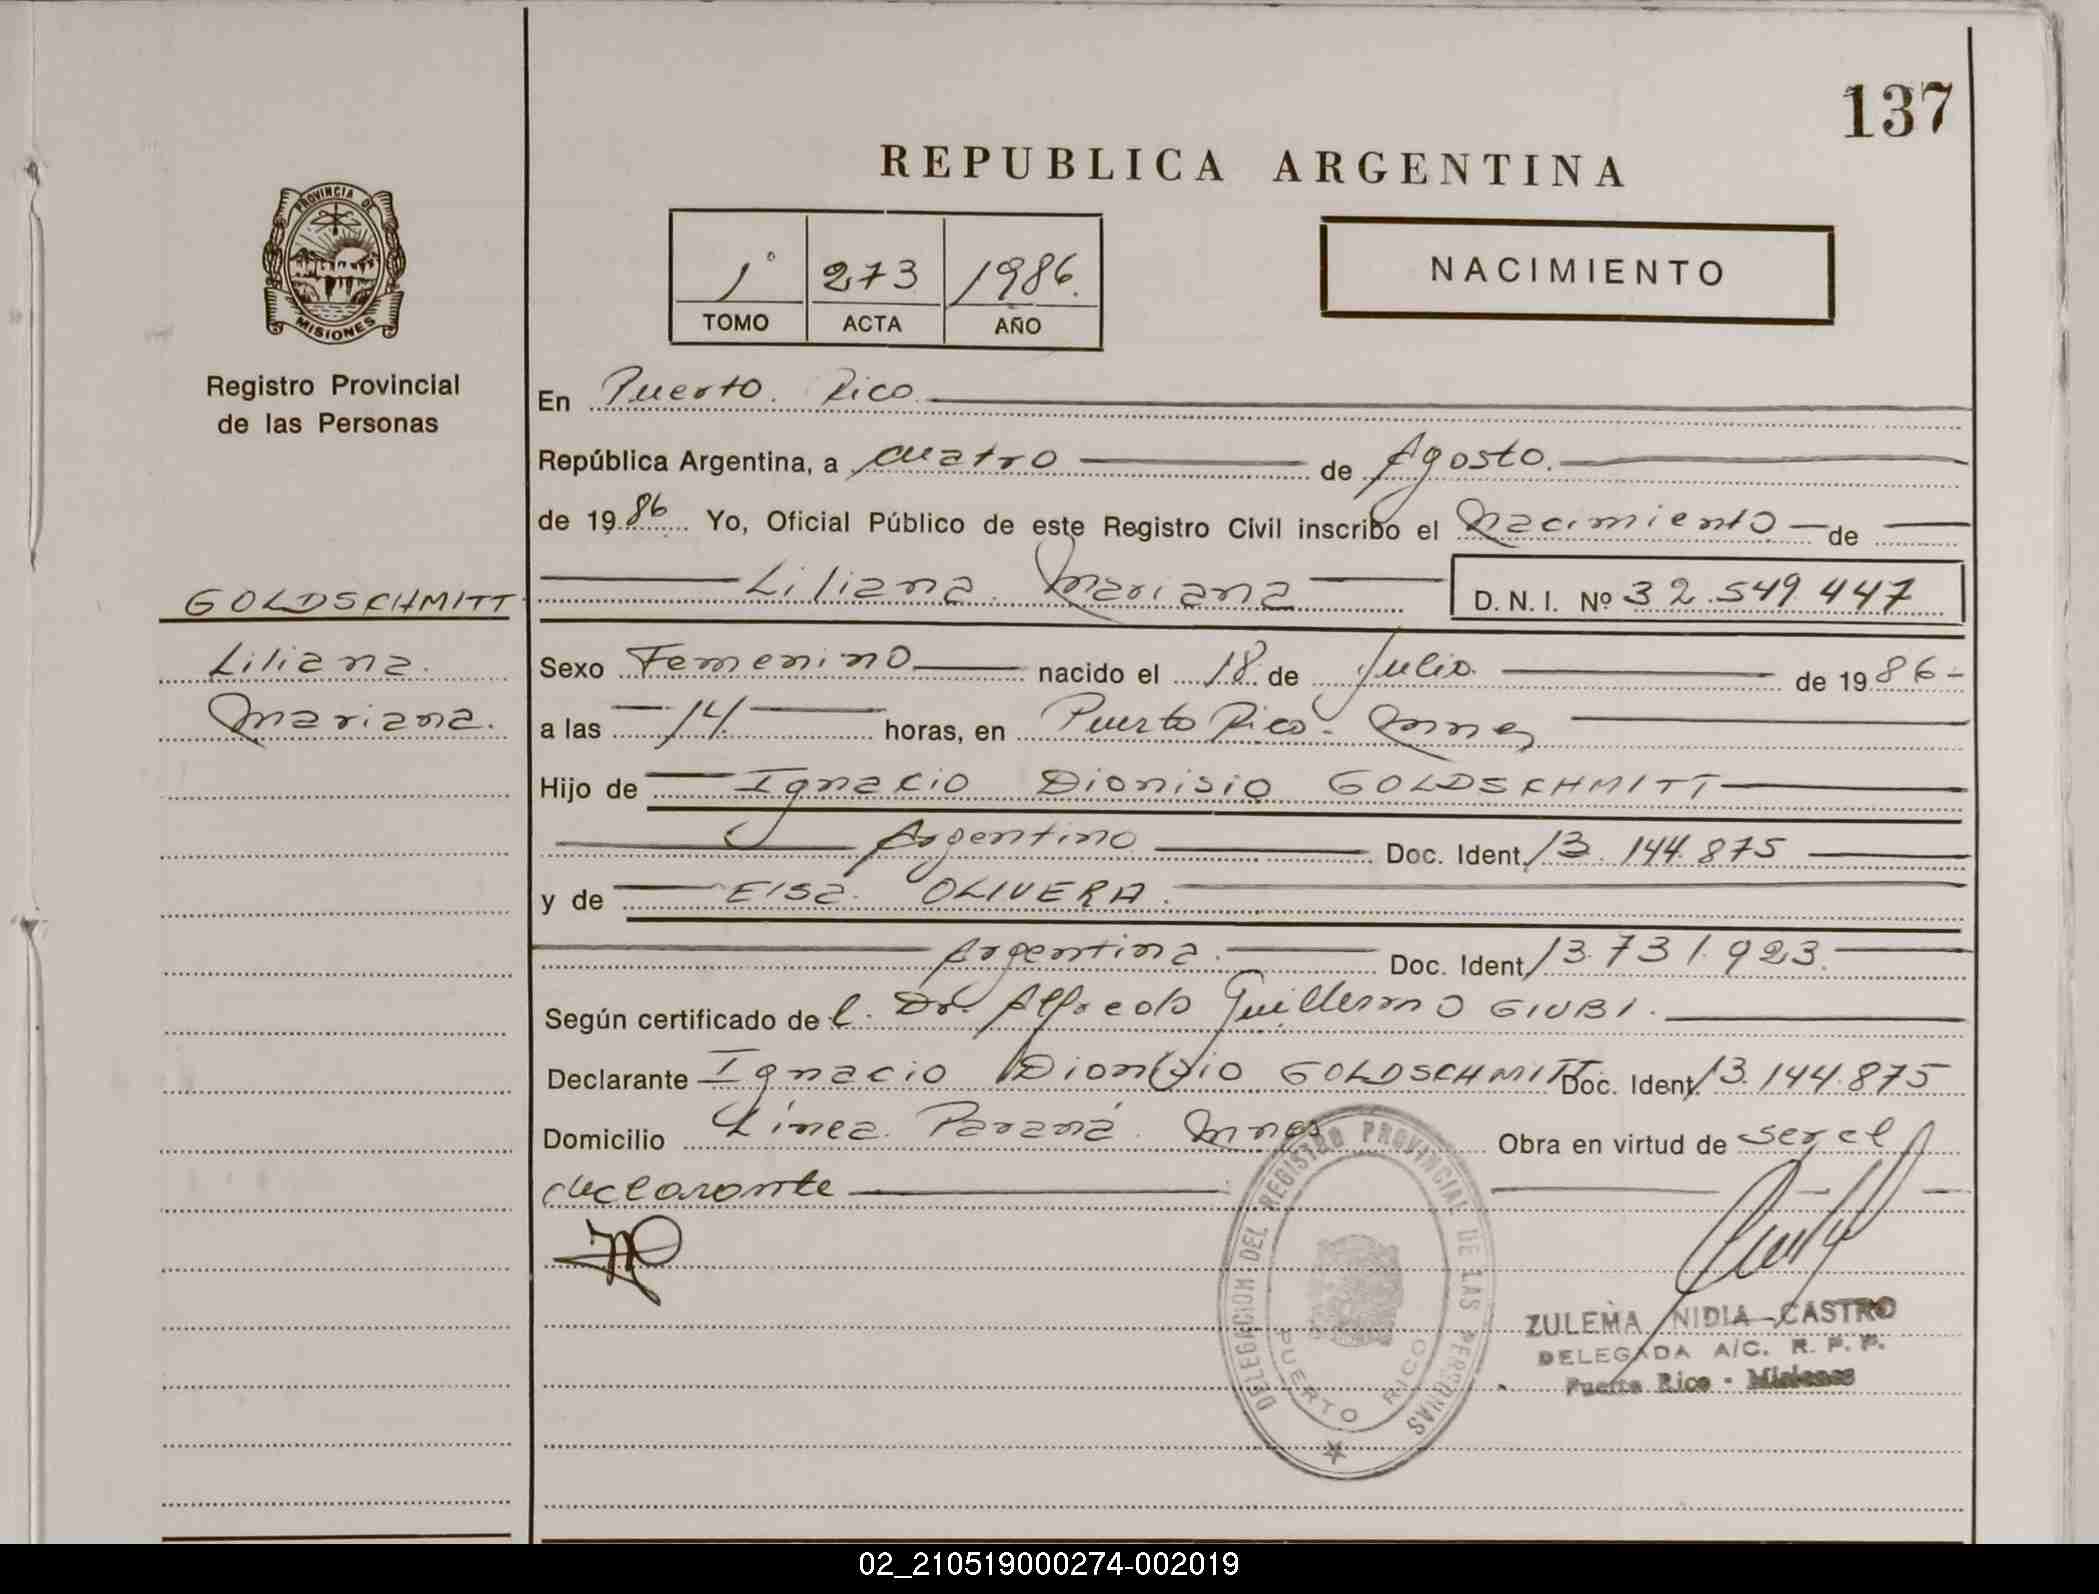 137
REPUBLICA ARGENTINA
PROVINCIA DE
MISIONES
Registro Provincial
de las Personas
1° 273 1986.
TOMO ACTA AÑO
NACIMIENTO
En Puerto Rico
República Argentina, a cuatro de Agosto.
de 1986. Yo, Oficial Público de este Registro Civil inscribo el Nacimiento de
GOLDSCHMITT
Liliana Mariana D.N.I. Nº 32.549.447
Liliana.
Mariana.
Sexo Femenino nacido el 18 de Julio de 1986-
a las 14 horas, en Puerto Rico- Mnes
Hijo de Ignacio Dionisio GOLDSCHMITT
Argentino Doc. Ident. 13.144.875
y de Elsa OLIVERA.
Argentina. Doc. Ident. 13.731.923.
Según certificado de l. Dr. Alfredo Guillermo GIUBI.
Declarante Ignacio Dionisio GOLDSCHMITT Doc. Ident. 13.144.875
Domicilio Línea Paraná Mnes Obra en virtud de ser el
declarante
DELEGACION DEL REGISTRO PROVINCIAL DE LAS PERSONAS
PUERTO RICO
ZULEMA NIDIA CASTRO
DELEGADA A/C. R. P. P.
Puerto Rico - Misiones
02_210519000274-002019